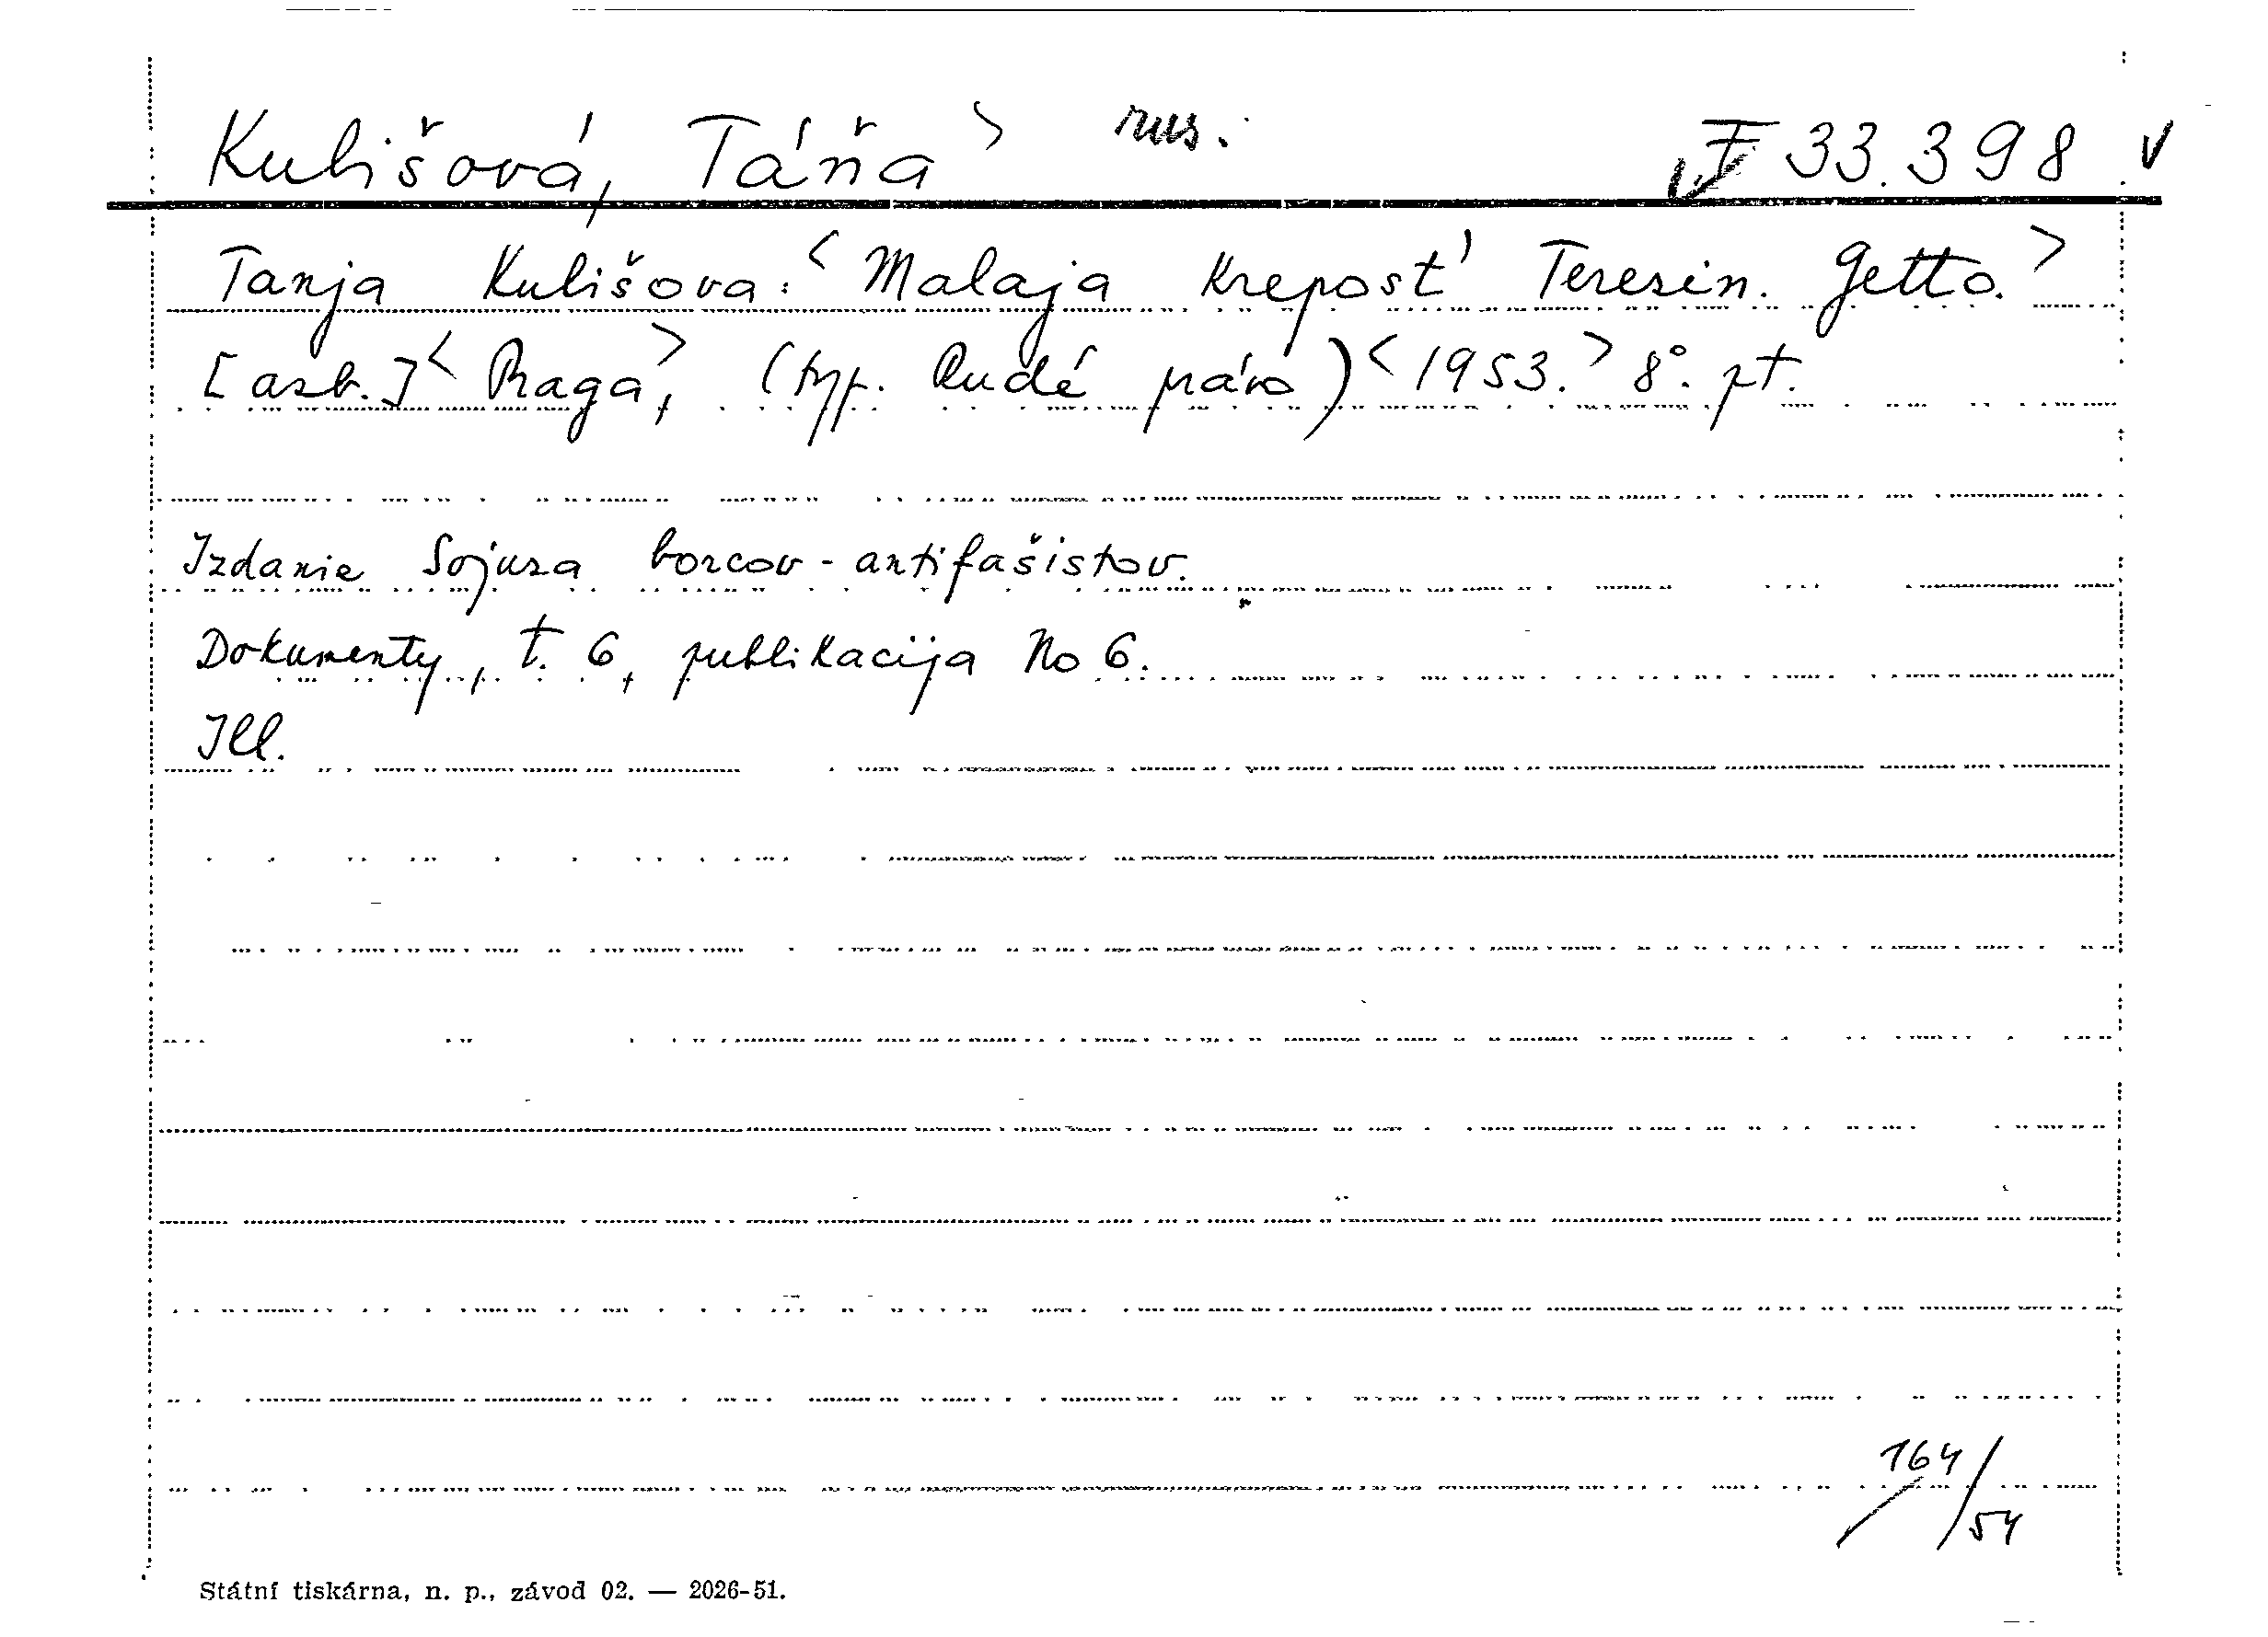 Kulišová, Táňa > rus. F 33.398 v
Tanja Kulišova: < Malaja Krepost' Teresin. Getto. >
[asb.] < Praga, > (typ. Rudé právo) < 1953. > 8°. pt.
Izdanie Sojuza borcov-antifašistov.
Dokumenty, t. 6, publikacija No 6.
Ill.
164/54
Státní tiskárna, n. p., závod 02. — 2026-51.